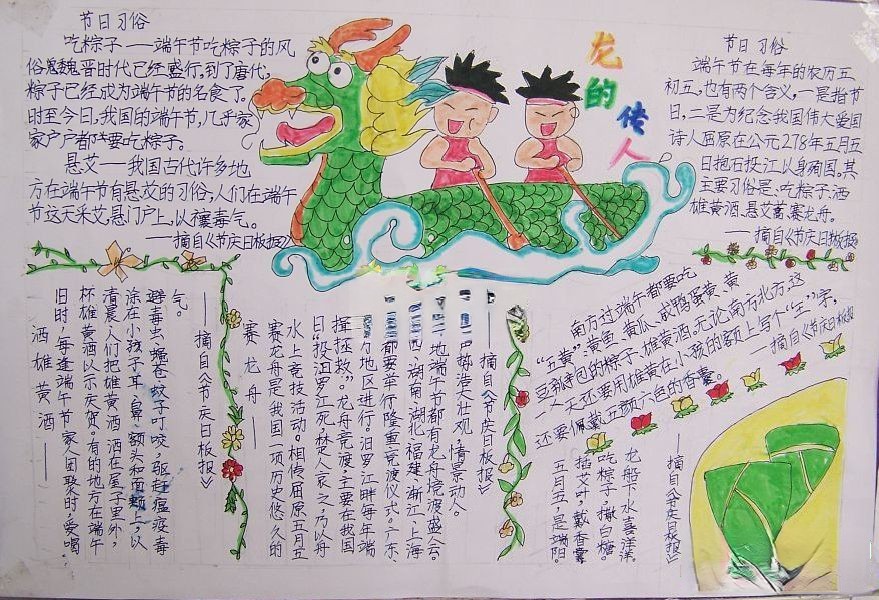 节日习俗
吃粽子——端午节吃粽子的风
俗魏晋时代已经盛行,到了唐代,
粽子已经成为端午节的名食了.
时至今日,我国的端午节,几乎家
家户户都要吃粽子。
悬艾——我国古代许多地
方在端午节有悬艾的习俗,人们在端午
节这天采艾,悬门户上,以禳毒气。
——摘自《节庆日板报》
龙
的
传
人
节日习俗
端午节在每年的农历五
初五,也有两个含义,一是指节
日,二是为纪念我国伟大爱国
诗人屈原在公元278年五月五
日抱石投江以身殉国,其
主要习俗是、吃粽子、洒
雄黄酒、悬艾蒿、赛龙舟。
——摘自《节庆日板报》
酒雄黄酒——
旧时,每逢端午节家人团聚时,爱喝
杯雄黄酒以示庆贺,有的地方在端午
清晨,人们把雄黄酒洒在屋子里外,
涂在小孩子耳、鼻、额头和面颊上,以
避毒虫、蝇苍蚊子叮咬,驱赶瘟疫毒
气。
——摘自《节庆日板报》
赛龙舟——
赛龙舟是我国一项历史悠久的
水上竞技活动。相传屈原五月五
日“投汨罗江死,楚人哀之,乃以舟
拯救。”龙舟竞渡,主要在我国
地区进行。汨罗江畔每年端
都要举行隆重竞渡仪式。广东、
湖南、湖北、福建、浙江、上海
地端午节都有龙舟竞渡盛会。
浩大壮观,情景动人。
——摘自《节庆日板报》
南方过端午都要吃
“五黄”:黄鱼、黄瓜、咸鸭蛋黄、黄
豆包的粽子、雄黄酒,无论南方北方,这
一天还要用雄黄在小孩的额上写个“王”字,
还要佩戴五颜六色的香囊。
——摘自《节庆日板报》
五月五,是端阳。
插艾叶,戴香囊
吃粽子,撒白糖。
龙船下水喜洋洋。
——摘自《节庆日板报》